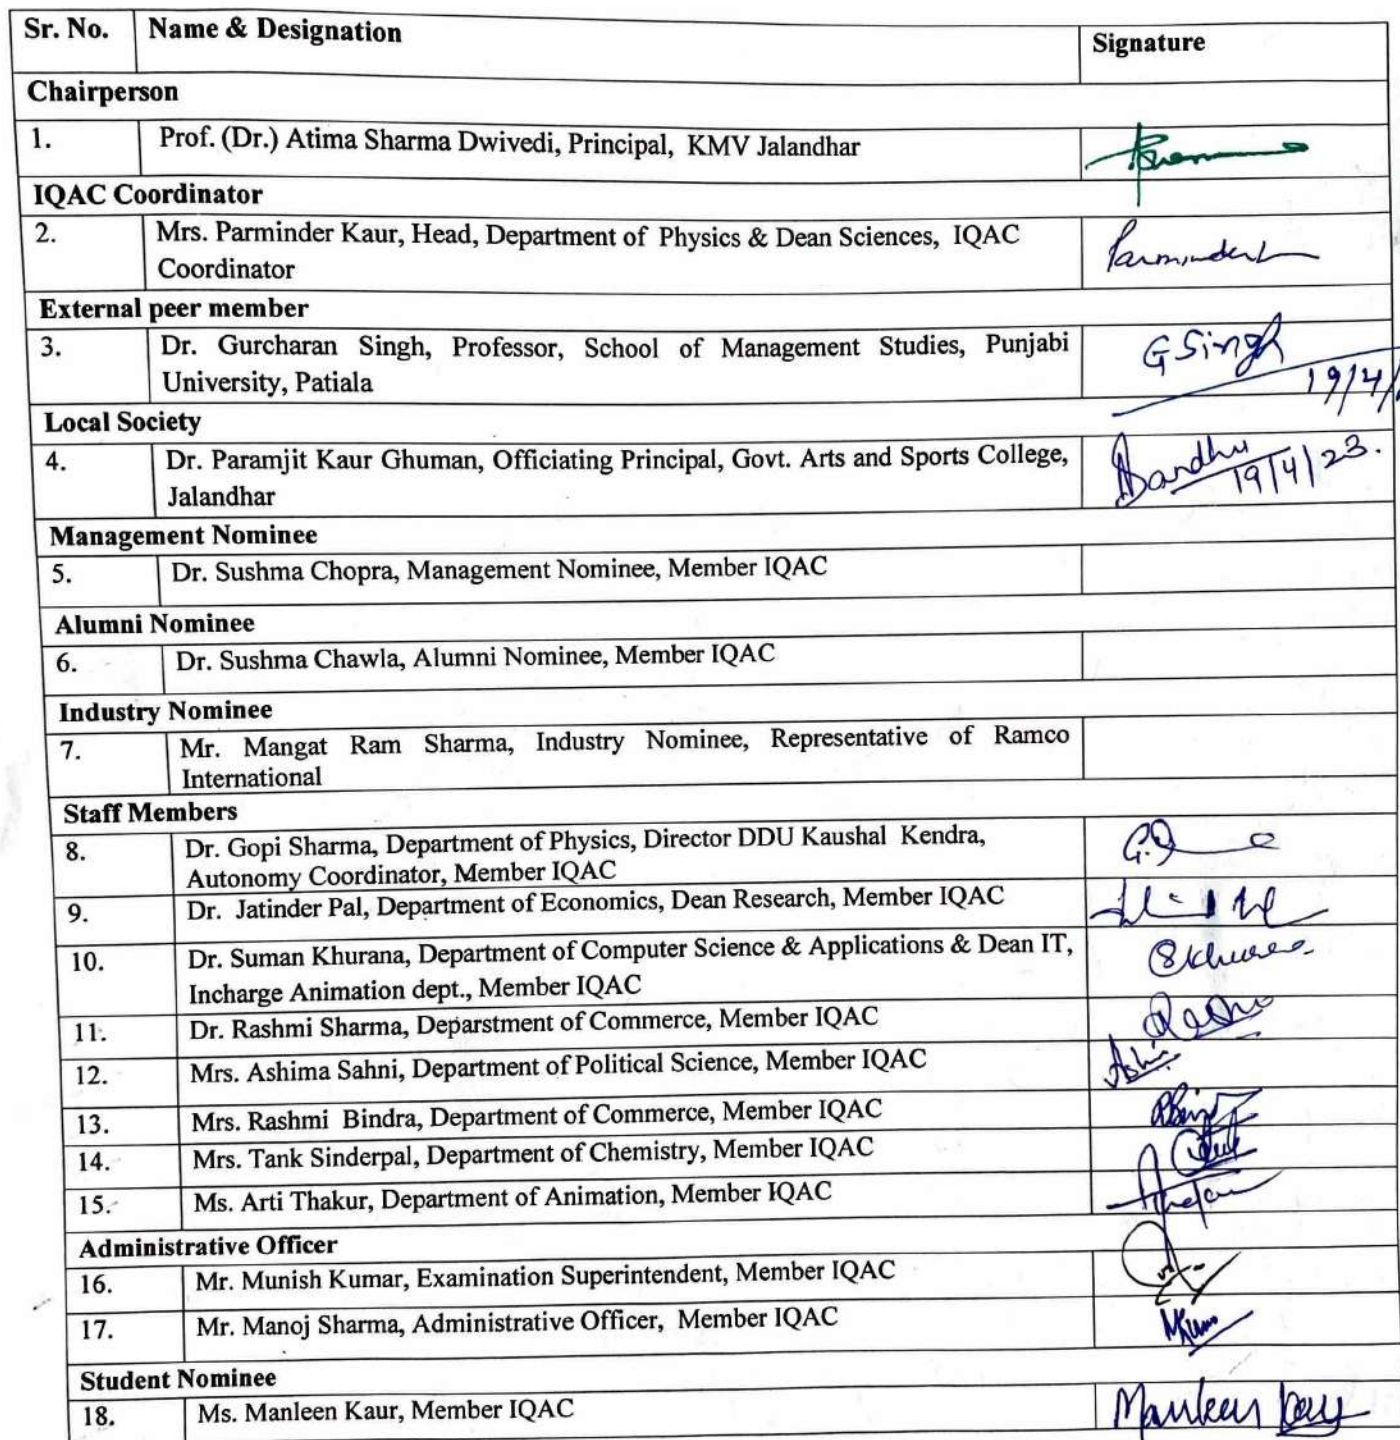 Sr. No. Name & Designation Signature
Chairperson
1. Prof. (Dr.) Atima Sharma Dwivedi, Principal, KMV Jalandhar
IQAC Coordinator
2. Mrs. Parminder Kaur, Head, Department of Physics & Dean Sciences, IQAC
Coordinator
External peer member
3. Dr. Gurcharan Singh, Professor, School of Management Studies, Punjabi G Singh
University, Patiala 19/4/
Local Society
4. Dr. Paramjit Kaur Ghuman, Officiating Principal, Govt. Arts and Sports College,
Jalandhar 19/4/23.
Management Nominee
5. Dr. Sushma Chopra, Management Nominee, Member IQAC
Alumni Nominee
6. Dr. Sushma Chawla, Alumni Nominee, Member IQAC
Industry Nominee
7. Mr. Mangat Ram Sharma, Industry Nominee, Representative of Ramco
International
Staff Members
8. Dr. Gopi Sharma, Department of Physics, Director DDU Kaushal Kendra,
Autonomy Coordinator, Member IQAC
9. Dr. Jatinder Pal, Department of Economics, Dean Research, Member IQAC
10. Dr. Suman Khurana, Department of Computer Science & Applications & Dean IT,
Incharge Animation dept., Member IQAC
11. Dr. Rashmi Sharma, Deparstment of Commerce, Member IQAC
12. Mrs. Ashima Sahni, Department of Political Science, Member IQAC
13. Mrs. Rashmi Bindra, Department of Commerce, Member IQAC
14. Mrs. Tank Sinderpal, Department of Chemistry, Member IQAC
15. Ms. Arti Thakur, Department of Animation, Member IQAC
Administrative Officer
16. Mr. Munish Kumar, Examination Superintendent, Member IQAC
17. Mr. Manoj Sharma, Administrative Officer, Member IQAC
Student Nominee
18. Ms. Manleen Kaur, Member IQAC Manleen Kaur